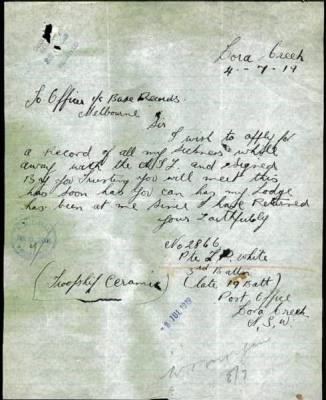 Dora Creek
4-7-19
To Officer i/c Base Records
Melbourne
Sir
I wish to apply for
a Record of all my Sickness while
away with the A.I.F. and signed
By you Trusting you will meet this
has soon has you can has my Lodge
has been at me since I have Returned
Yours Faithfully
No 2866
Pte L. P. White
3rd Battn
(Troopship Ceramic)
(Late 19 Batt)
Post Office
Dora Creek
N.S.W.
8 JUL 1919
8/7